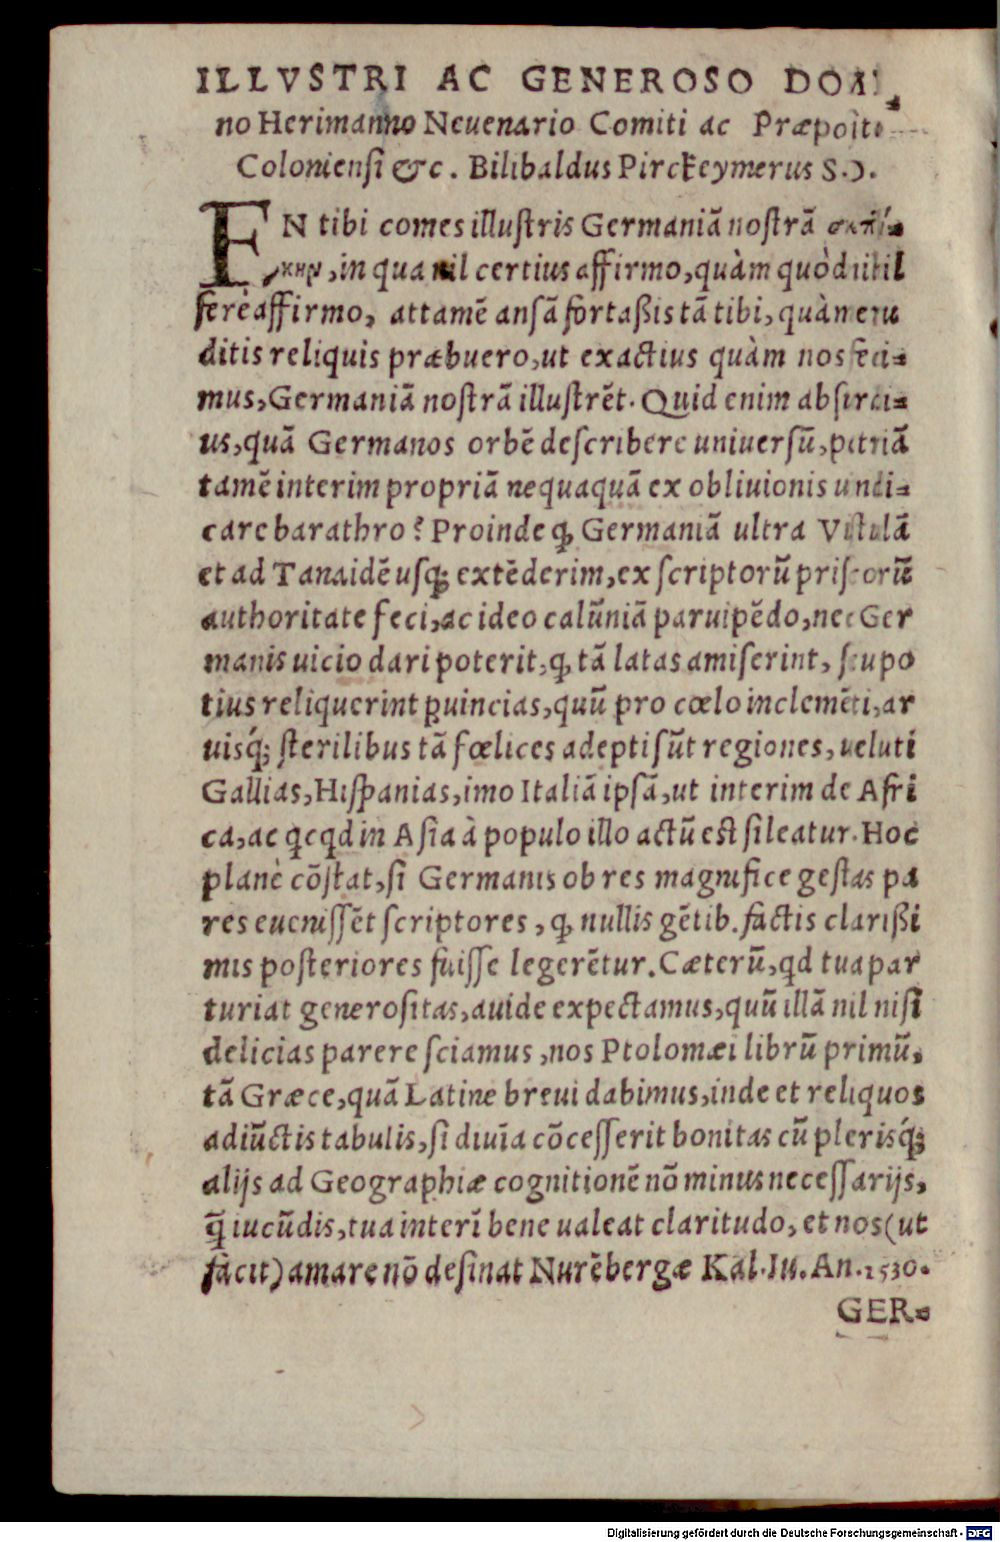 ILLVSTRI AC GENEROSO DOMI⸗
no Herimanno Neuenario Comiti ac Præposito
Coloniensi &c. Bilibaldus Pirckeymerus S.D.
EN tibi comes illustris Germaniā nostrā
, in qua nil certius affirmo, quàm quòd nihil
ferè affirmo, attamē ansā fortaßis tā tibi, quàm eru
ditis reliquis præbuero, ut exactius quàm nos feci⸗
mus, Germaniā nostrā illustrēt. Quid enim absurdi⸗
us, quā Germanos orbē describere uniuersū, patriā
tamē interim propriā nequaquā ex obliuionis undi⸗
care barathro? Proinde ꝙ Germaniā ultra Vistulā
et ad Tanaidē usqꝫ extēderim, ex scriptorū priscorū
authoritate feci, ac ideo calūniā paruipēdo, nec Ger
manis uicio dari poterit, ꝙ tā latas amiserint, seu po
tius reliquerint ꝓuincias, quū pro cœlo inclemēti, ar
uisqꝫ́ sterilibus tā fœlices adepti sūt regiones, ueluti
Gallias, Hispanias, imo Italiā ipsā, ut interim de Afri
ca, ac qcqd in Asia à populo illo actū est sileatur. Hoc
planè cōstat, si Germanis ob res magnifice gestas pa
res euenissēt scriptores, ꝙ nullis gētib. factis clarißi
mis posteriores fuisse legerētur. Cæterū, qd tua par
turiat generositas, auide expectamus, quū illā nil nisi
delicias parere sciamus, nos Ptolomæi librū primū,
tā Græce, quā Latine breui dabimus, inde et reliquos
adiūctis tabulis, si diuīa cōcesserit bonitas cū plerisqꝫ́
alijs ad Geographiæ cognitionē nō minus necessarijs,
q̄ iucūdis, tua interī bene ualeat claritudo, et nos (ut
facit) amare nō desinat Nurēbergæ Kal. Iu. An. 1530.
GER⸗
Digitalisierung gefördert durch die Deutsche Forschungsgemeinschaft - DFG